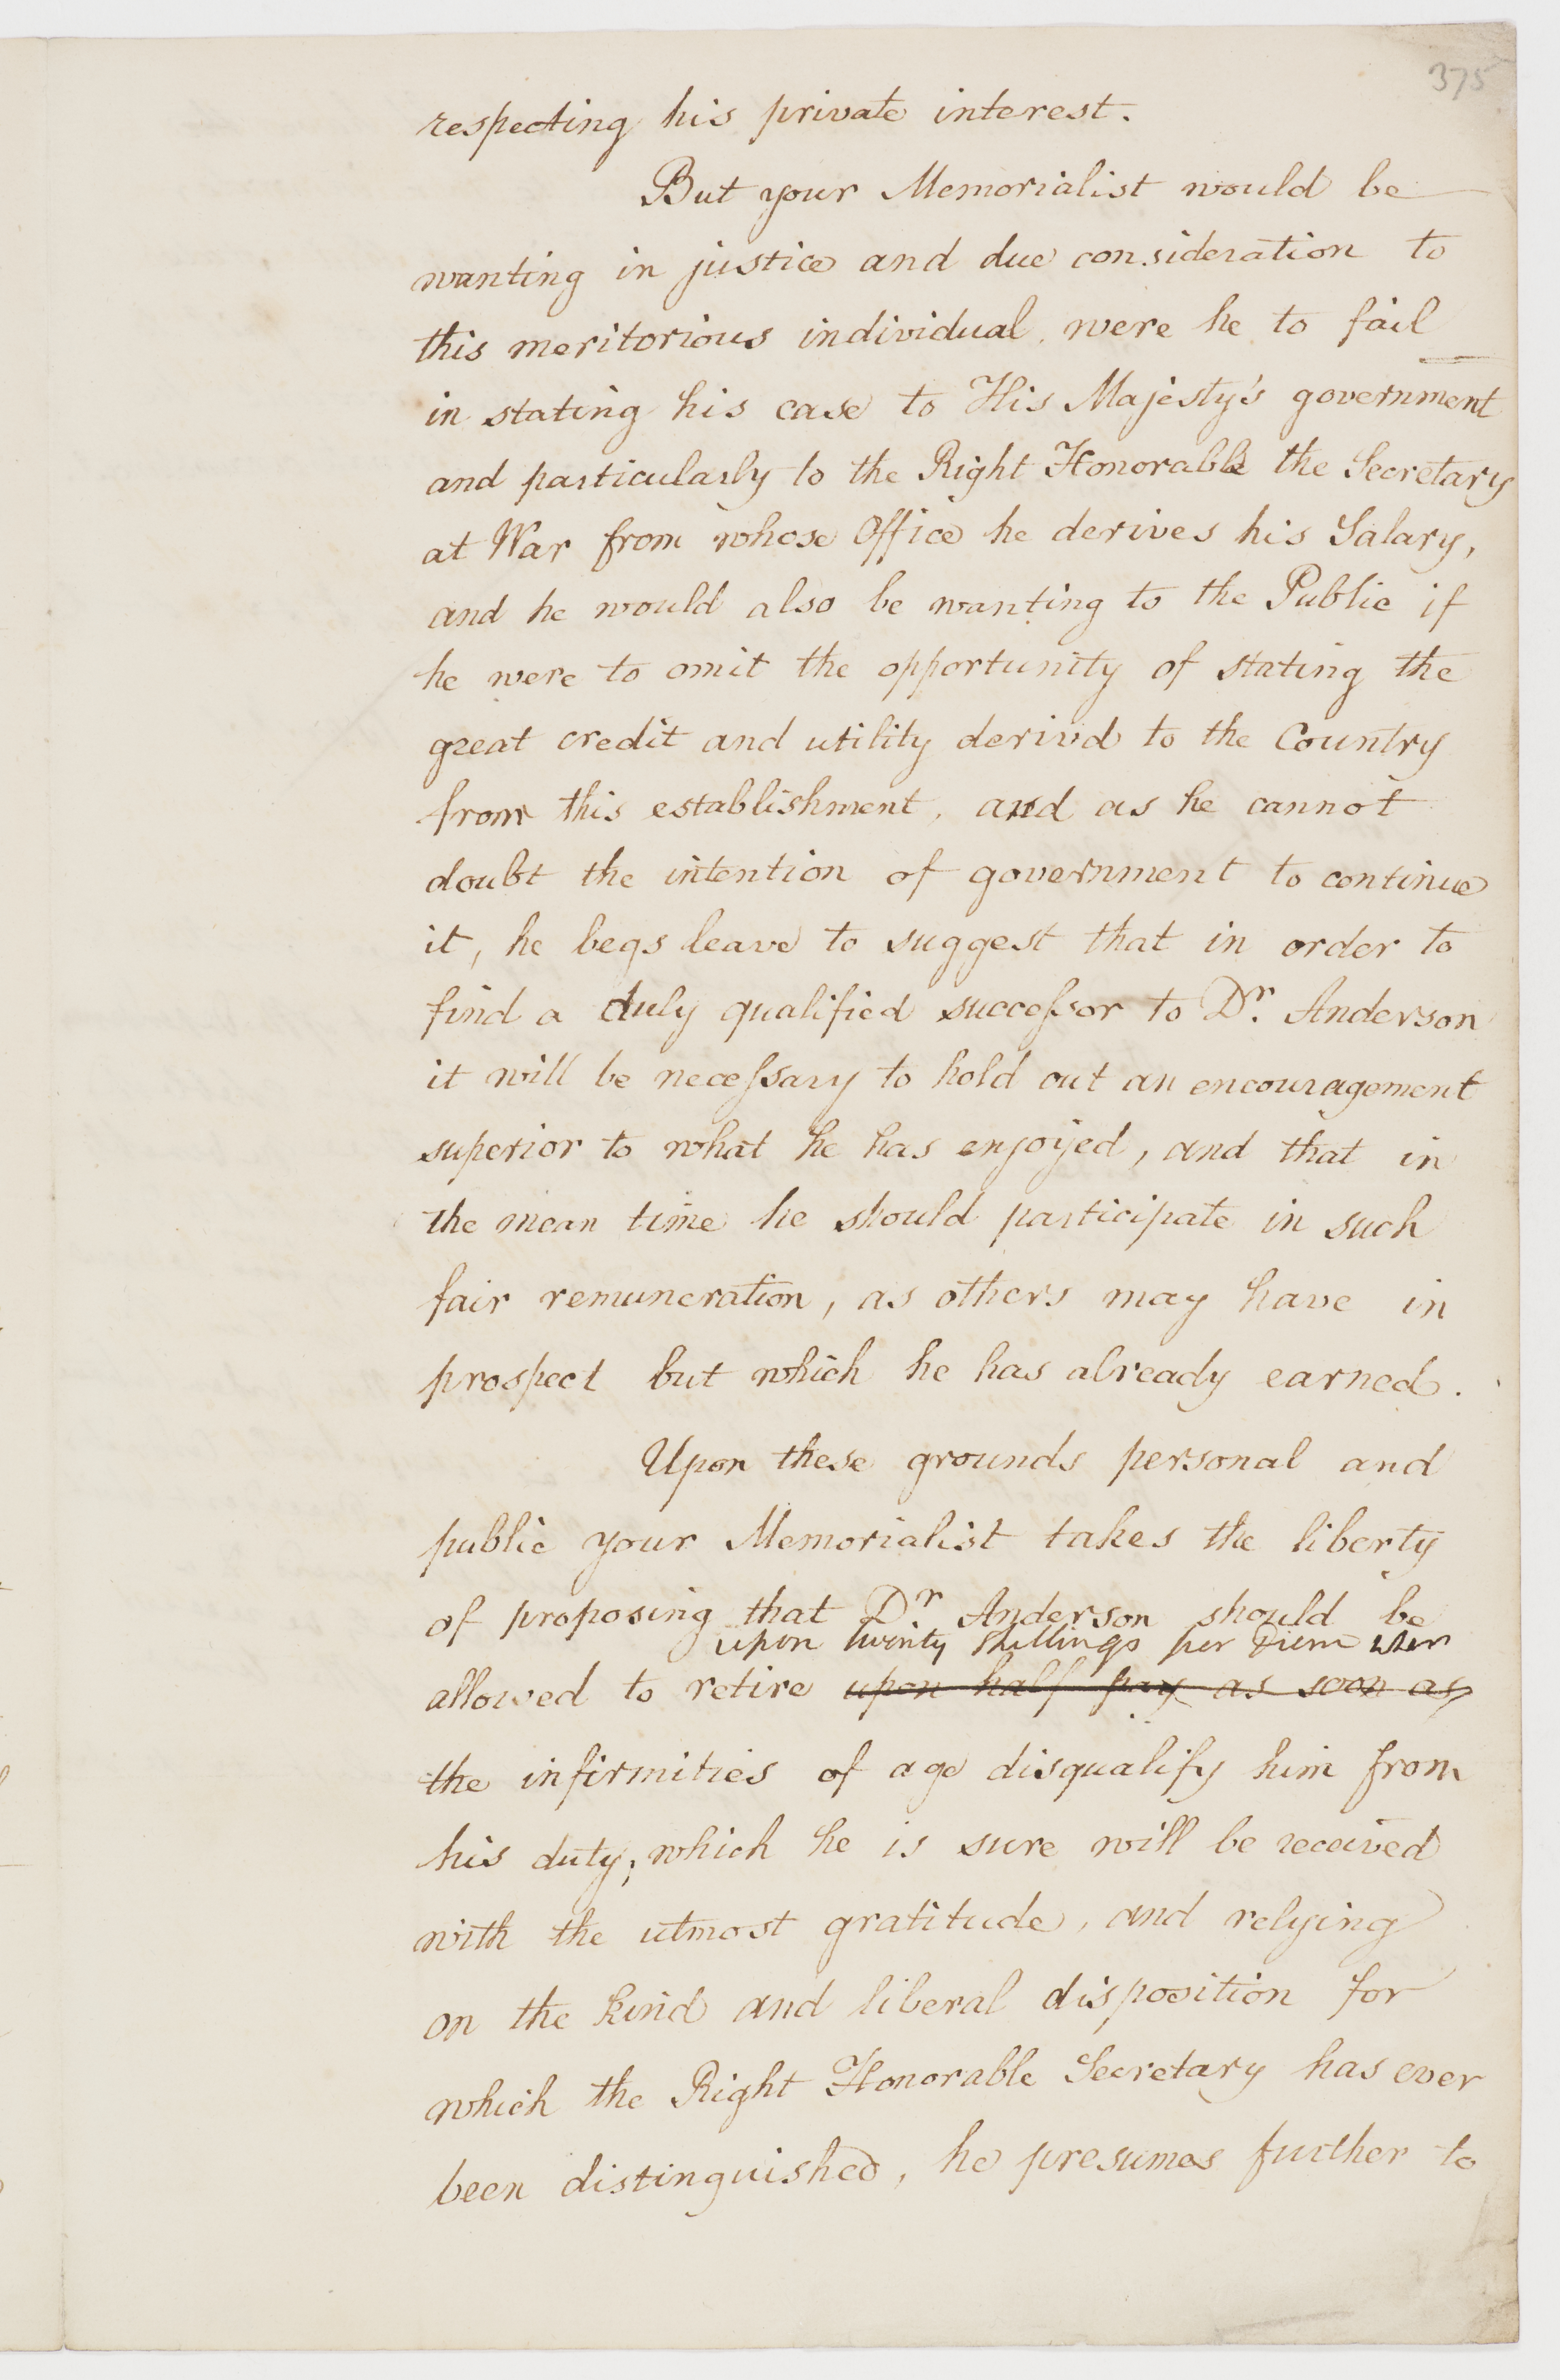 375
respecting his private interest.
But your Memorialist would be
wanting in justice and due consideration to
this meritorious individual, were he to fail
in stating his case to His Majesty's government
and particularly to the Right Honorable the Secretary
at War from whose Office he derives his Salary,
and he would also be wanting to the Public if
he were to omit the opportunity of stating the
great credit and utility derivd to the Country
from this establishment, and as he cannot
doubt the intention of government to continue
it, he begs leave to suggest that in order to
find a duly qualified succeſsor to Dr. Anderson
it will be neceſsary to hold out an encouragement
superior to what he has enjoyed, and that in
the mean time he should participate in such
fair remuneration, as others may have in
prospect but which he has already earned.
Upon these grounds personal and
public your Memorialist takes the liberty
of proposing that Dr. Anderson should be
upon twenty shillings per Diem when
allowed to retire upon half pay as soon as
the infirmities of age disqualify him from
his duty; which he is sure will be received
with the utmost gratitude, and relying
on the kind and liberal disposition for
which the Right Honorable Secretary has ever
been distinguished, he presumes further to